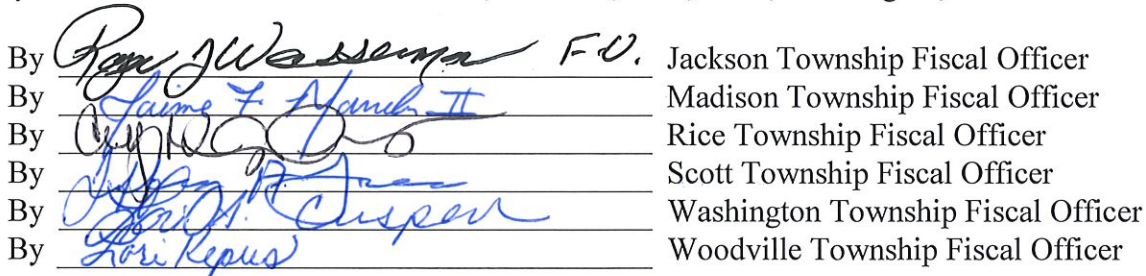 By Roger J Wasserman F.O. Jackson Township Fiscal Officer
By Jaime F II Madison Township Fiscal Officer
By Rice Township Fiscal Officer
By Scott Township Fiscal Officer
By Lori A. Washington Township Fiscal Officer
By Lori Repus Woodville Township Fiscal Officer